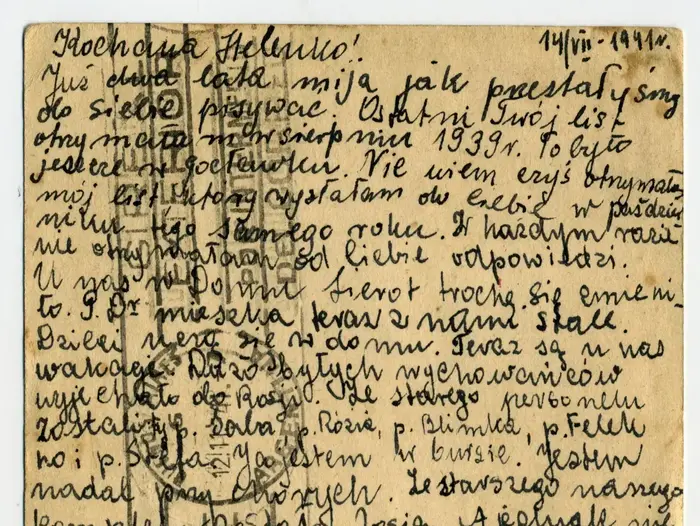 14/VII-1941r.
Kochana Helenko!
Już dwa lata mija jak przestałyśmy
do siebie pisywać. Ostatni Twój list
otrzymałam w sierpniu 1939r. To było
jeszcze w Gocławku. Nie wiem czyś otrzymała
mój list który wysłałam do Ciebie w paździer
niku tego samego roku. W każdym razie
nie otrzymałam od Ciebie odpowiedzi.
U nas w Domu Sierot trochę się zmieni-
ło. P. Dr mieszka teraz z nami stale.
Dzieci uczą się w domu. Teraz są u nas
wakacje. Dużo byłych wychowanków
wyjechało do Rosji. Ze starego personelu
zostali p. Saba, p. Rózia, p. Blimka, p. Felek
no i p. Stefa. Ja jestem w bursie. Jestem
nadal przy chórych. Ze starszego naszego